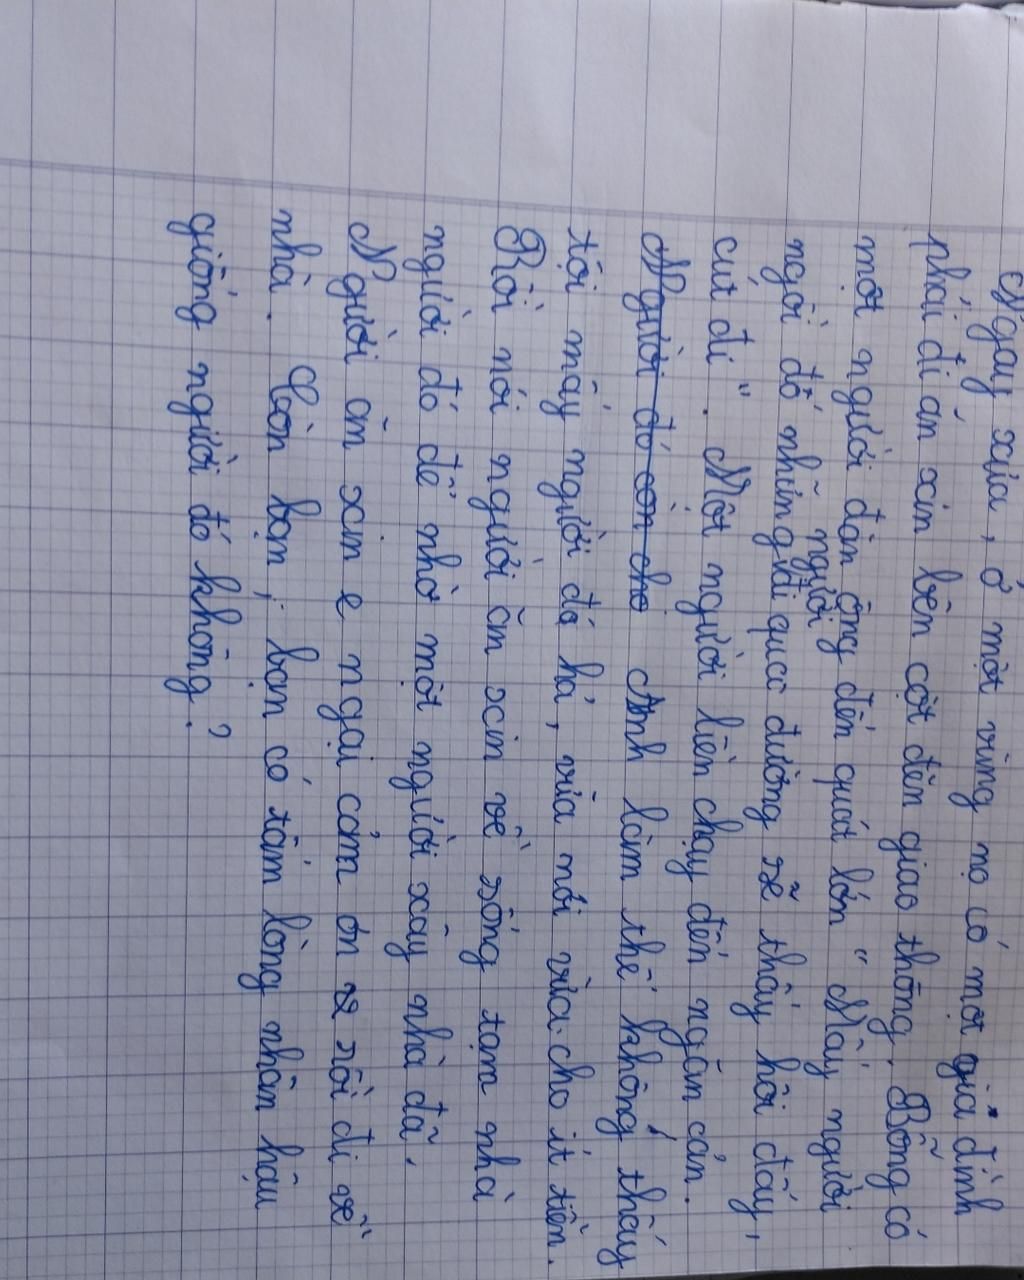 Ngày xưa, ở một vùng nọ có một gia đình
phải đi ăn xin bên cột đèn giao thông. Bỗng có
một người đàn ông đến quát lớn " Mấy người
ngồi đó những người đi qua đường sẽ thấy hôi đấy,
cút đi ". Một người liền chạy đến ngăn cản.
Người đó còn cho Anh làm thế không thấy
tội mấy người đó hả, vừa nói vừa cho ít tiền.
Rồi nói người ăn xin về sống tạm nhà
người đó để nhờ một người xây nhà đã.
Người ăn xin e ngại cảm ơn rồi đi về
nhà. Còn bạn, bạn có tấm lòng nhân hậu
giống người đó không?